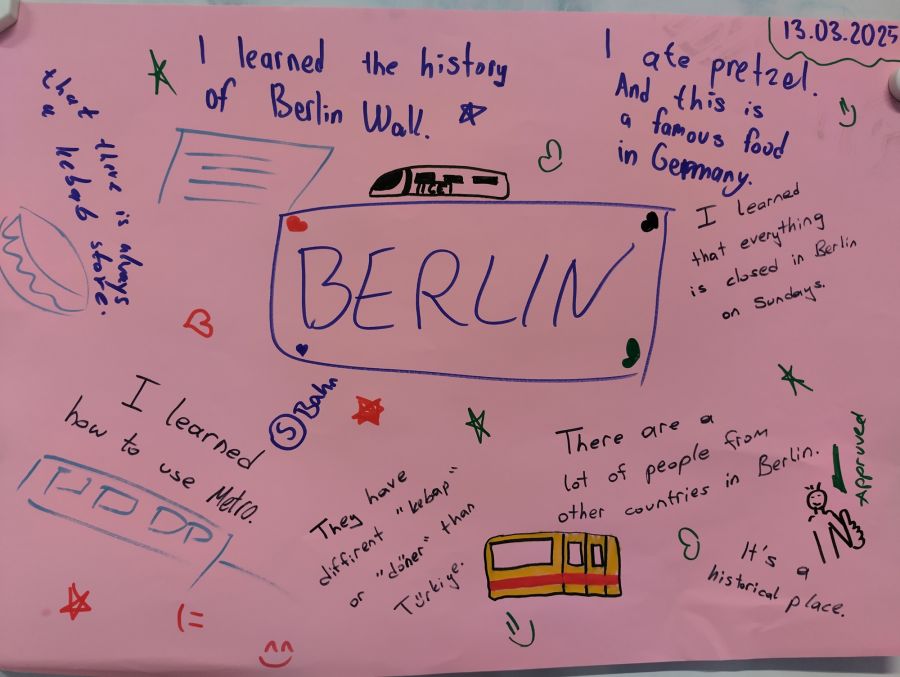 13.03.2025
I learned the history
of Berlin Wall.
I ate pretzel.
And this is
a famous food
in Germany.
that there is always
a kebab store.
BERLIN
I learned
that everything
is closed in Berlin
on Sundays.
I learned
how to use Metro.
S Bahn
They have
diffirent "kebap"
or "döner" than
Türkiye.
There are a
lot of people from
other countries in Berlin.
Appruved
It's a
historical place.